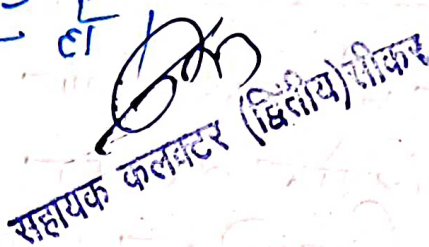 हो
सहायक कलक्टर (द्वितीय) सीकर